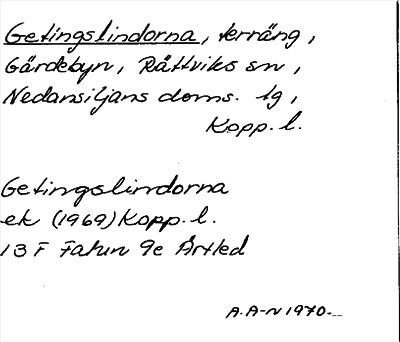 Getingslindorna, terräng,
Gärdebyn, Rättviks sn,
Nedansiljans doms. tg,
Kopp. l.
Getingslindorna
ek (1969) Kopp. l.
13 F Falun 9e Årtled
A. A-N 1970.